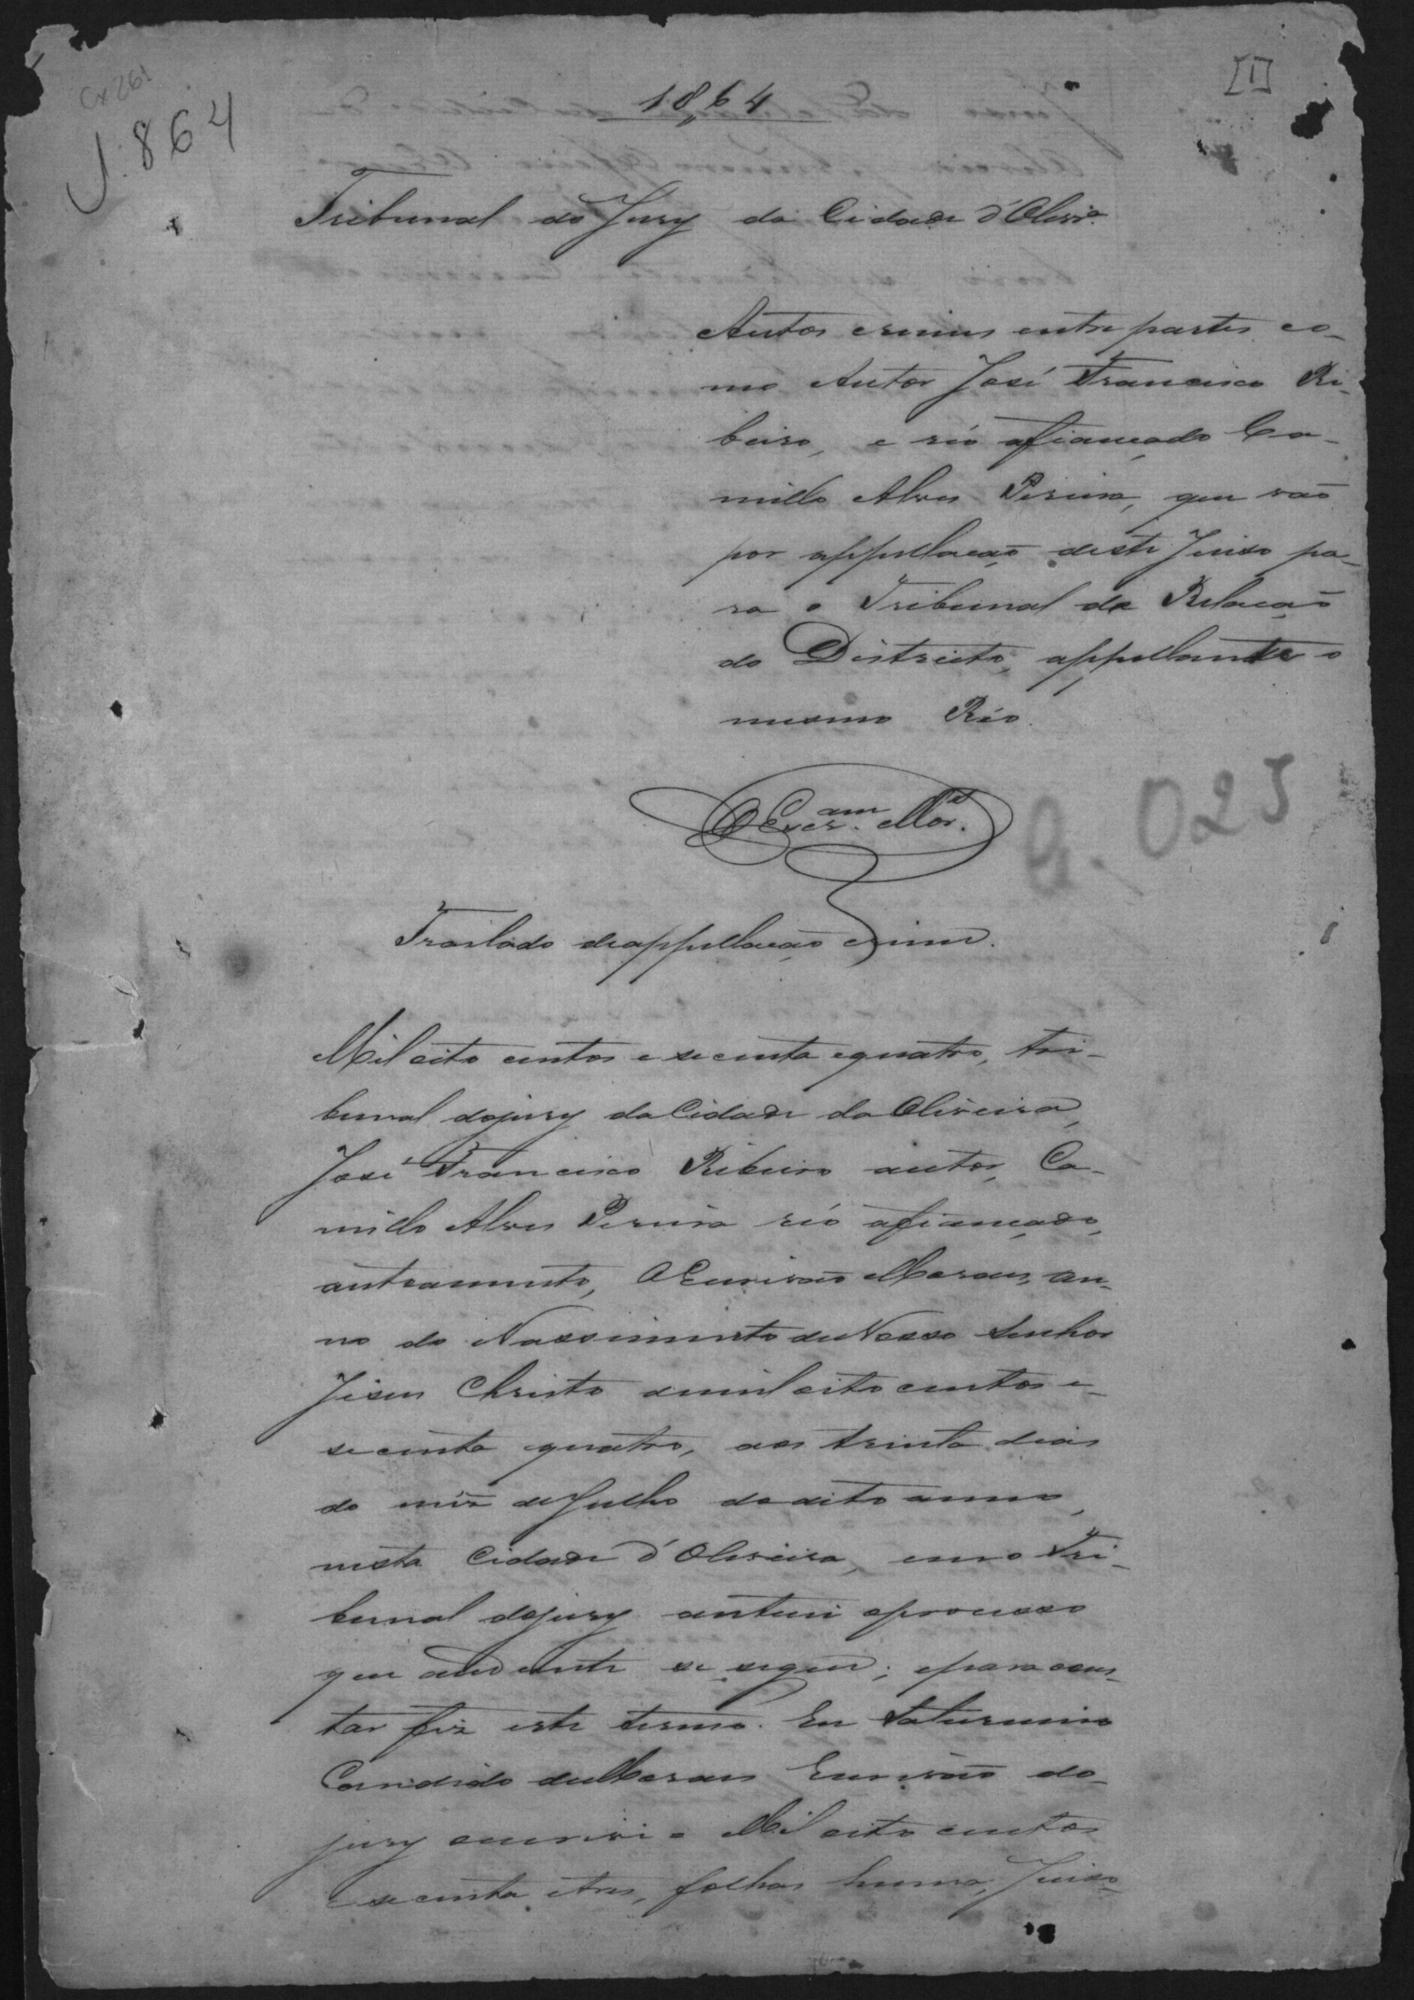 Cx 261
[1]
1864
1864
Tribunal do Jury da Cidade d'Olivrª.
Autos crimes entre partes co-
mo Autor José Francisco Ri-
beiro, e réo afiançado Ca-
millo Alves Pereira, que vão
por appellação deste Juiso pa-
ra o Tribunal da Relação
do Districto, appellante o
mesmo Réo.
O Escram. Mor.
G. 025
Traslado de appellação crime.
Mil oito centos e secenta e quatro, tri-
bunal do jury da Cidade da Oliveira,
José Francisco Ribeiro autor, Ca-
millo Alves Pereira réo afiançado,
autoamento, O Escrivão Moraes, an-
no do Nassimento de Nosso Senhor
Jesus Christo de mil oito centos e
secenta quatro, aos trinta dias
do mêz de Julho do dito anno,
nesta Cidade d'Oliveira, em o Tri-
bunal do jury autuei o processo
que adiante se segue; e para cons-
tar fiz este termo. Eu Saturnino
Candido de Moraes Escrivão do
jury escrivi = Mil oito centos
e secenta e tres, folhas huma, Juiso